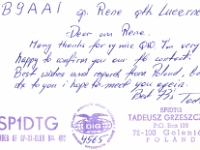 B9AAI gr. Rene qth Lucerne
Dear om Rene.
Many thanks for ur nice QSO. I'm very
happy to confirm you our fb contact.
Best wishes and regards from Poland,
to you i hope to meet you again.
Best 73!
SP1DTG
DIG
4565
SP1DTG
TADEUSZ GRZESZCZ
PO Box 129
72-100 Goleni
POLAND